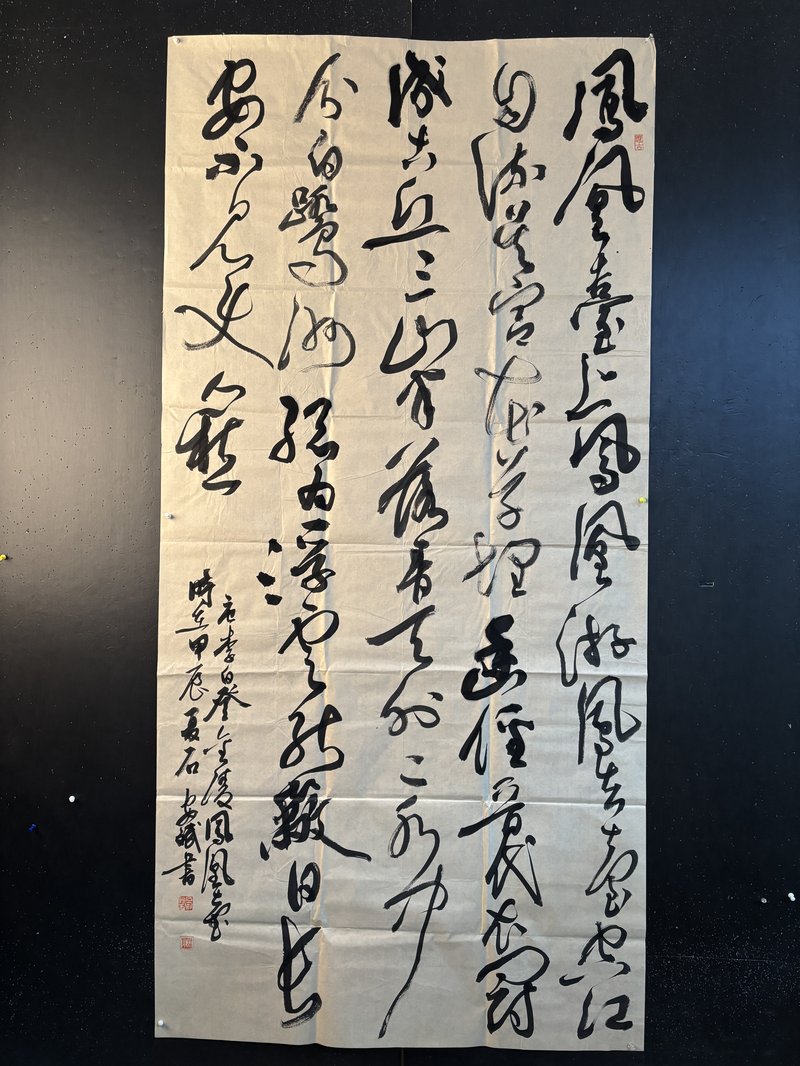 鳳凰臺上鳳凰游鳳去臺空江
自流吳宮花草埋幽徑晉代衣冠
成古丘三山半落青天外二水中
分白鷺洲總為浮雲能蔽日長
安不見使人愁
李白登金陵鳳凰臺
時在甲辰夏石書